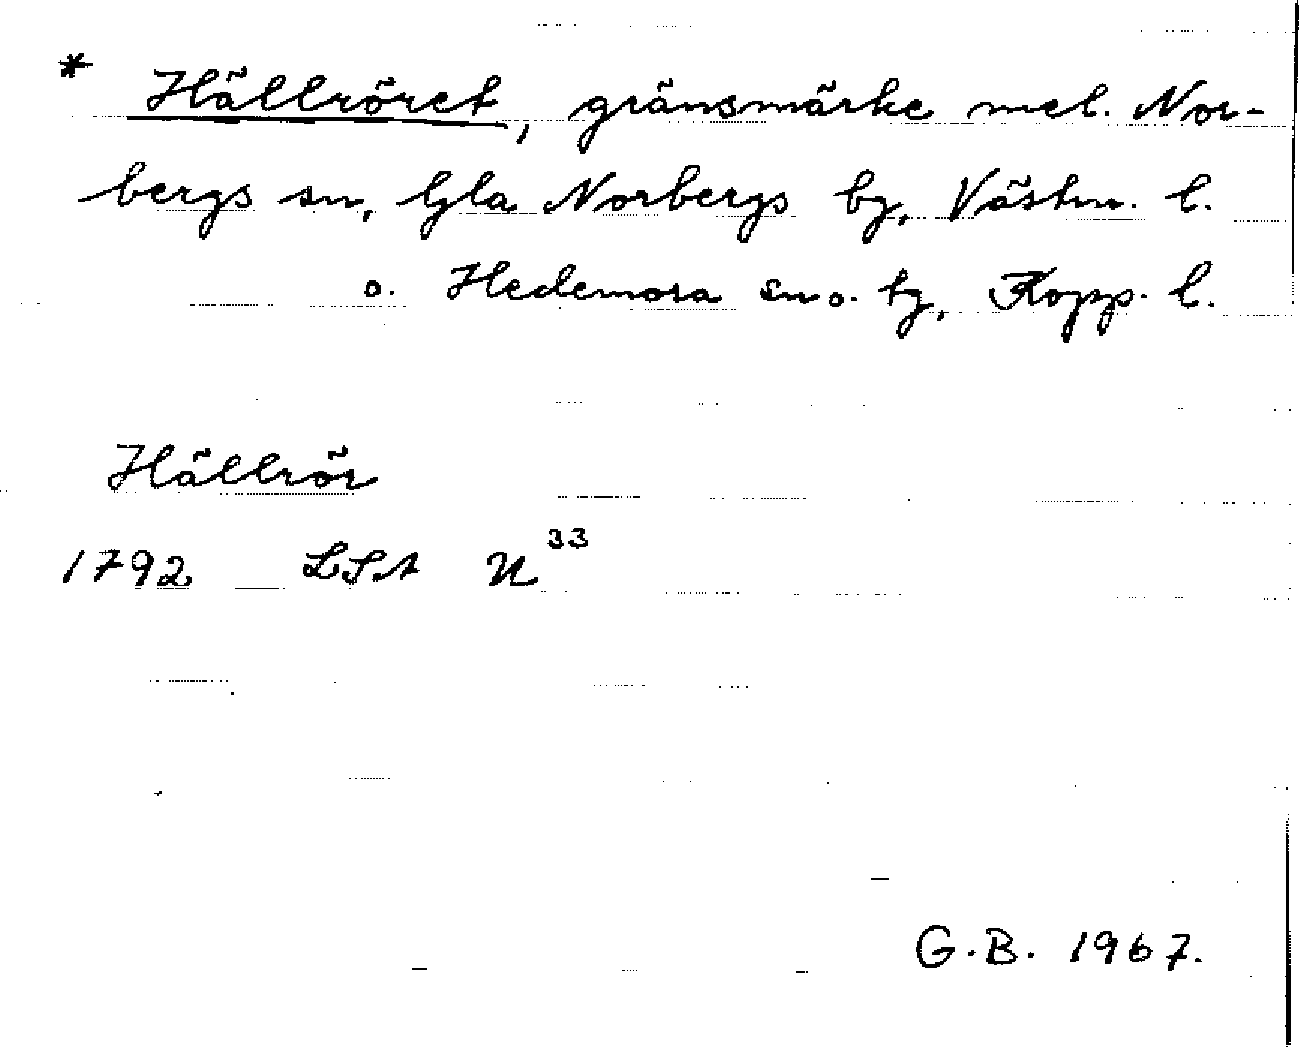 * Hällröret, gränsmärke mel. Nor-
bergs sn, Gla Norbergs bg, Västm. l.
o. Hedemora sn o. bg, Kopp. l.
Hällrör
1792 LSA U 33
G.B. 1967.